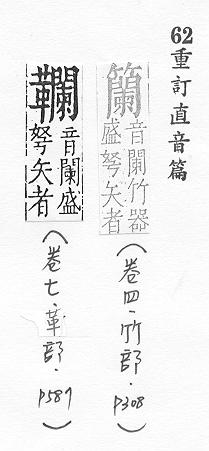 62 重訂直音篇
籣 音闌竹器盛弩矢者
（卷四．竹部．P308）
韊 音闌盛弩矢者
（卷七．革部．P587）